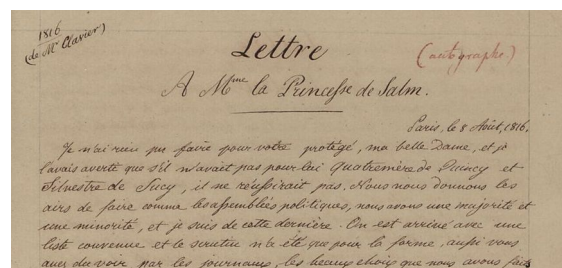 1816
(de Mr Clavier)
Lettre
(autographe.)
A Mme la Princesse de Salm.
Paris, le 8 Août, 1816.
Je n'ai rien pu faire pour votre protégé, ma belle Dame, et je
l'avais averti que s'il n'avait pas pour lui Quatremère de Quincy et
Silvestre de Sacy, il ne réussirait pas. Nous nous donnons les
airs de faire comme les assemblées politiques, nous avons une majorité et
une minorité, et je suis de cette dernière. On est arrivé avec une
liste convenue et le scrutin n'a été que pour la forme, aussi vous
avez dû voir par les journaux, les beaux choix que nous avons faits